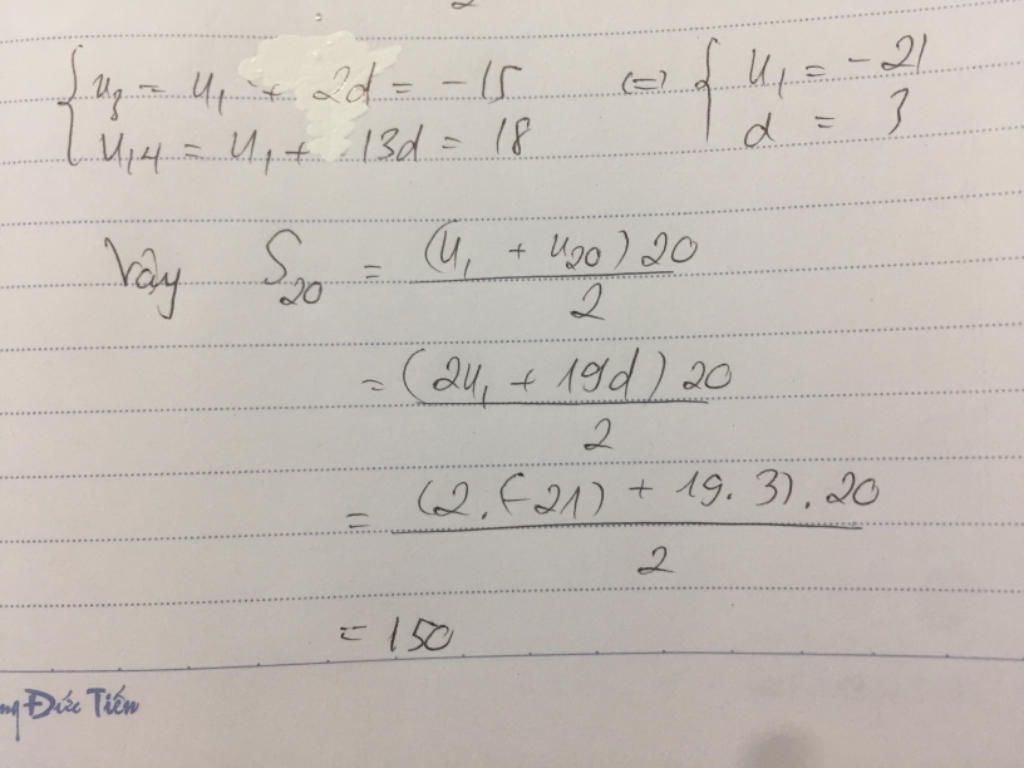 { u₃ = u₁ + 2d = -15 <=> { u₁ = -21
u₁₄ = u₁ + 13d = 18 d = 3
Vậy S₂₀ = (u₁ + u₂₀) 20 / 2
= (2u₁ + 19d) 20 / 2
= (2.(-21) + 19.3).20 / 2
= 150
Đức Tiến